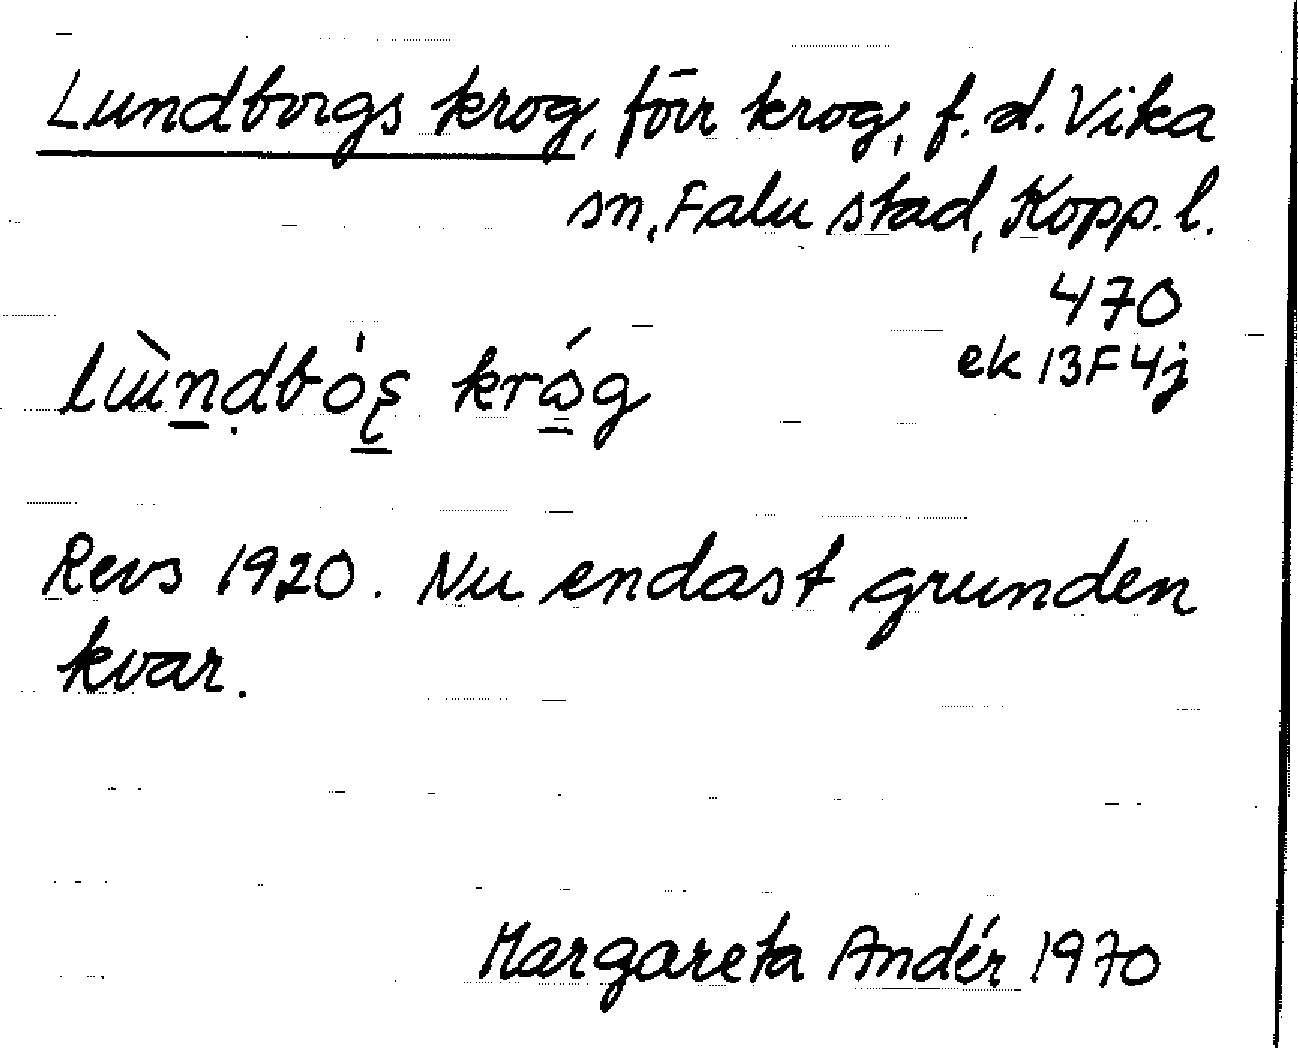 Lundborgs krog, förr krog, f.d. Vika
sn, Falu stad, Kopp. l.
470
ek 13F4j
kråg
Revs 1920. Nu endast grunden
kvar.
Margareta Andér 1970